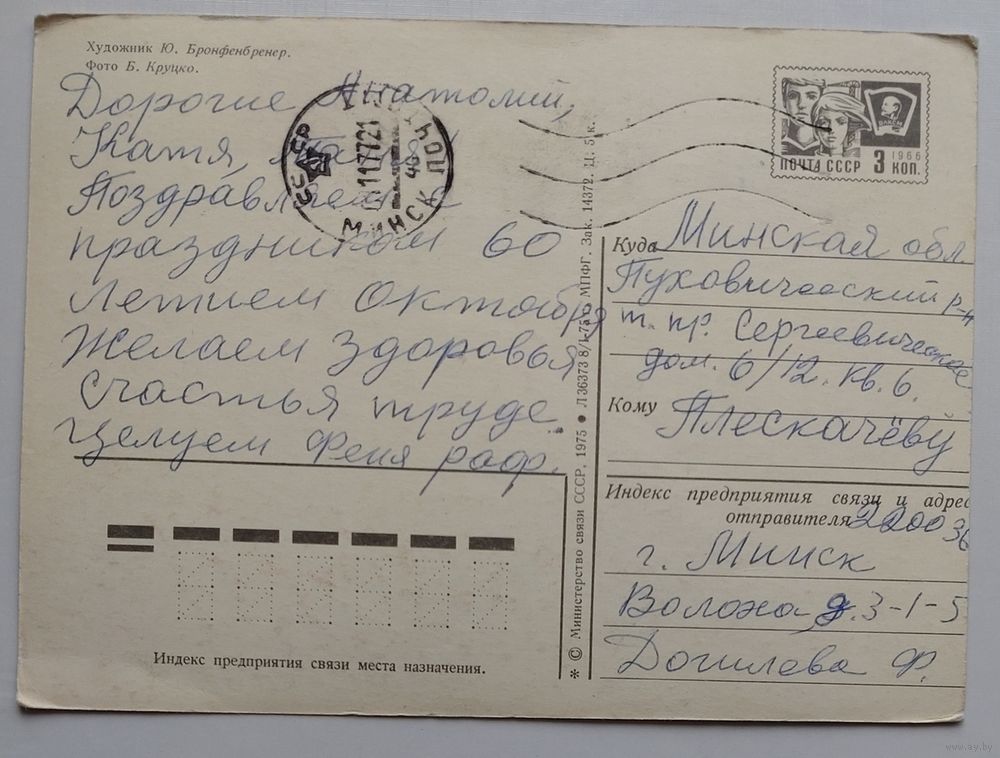 Художник Ю. Бронфенбренер.
Фото Б. Круцко.
Дорогие Анатолий,
Катя,
Поздравляем с
праздником 60
Летием Октября
Желаем здоровья
счастья труде.
Целуем Феня раф.
МИНСК
ПОЧТА СССР 3 КОП.
1966
ВЛКСМ
Куда Минская обл
Пуховический р-н
т. пр. Сергеевическое
дом. 6/12. кв. 6.
Кому Плескачёву
Индекс предприятия связи и адрес
отправителя 220036
г. Минск
Воложа д. 3-1-5
Догилева Ф.
* © Министерство связи СССР, 1975 ● Л36373 8/I-75 г. МПФГ. Зак. 14372. Ц. 5 к.
Индекс предприятия связи места назначения.
www.ay.by